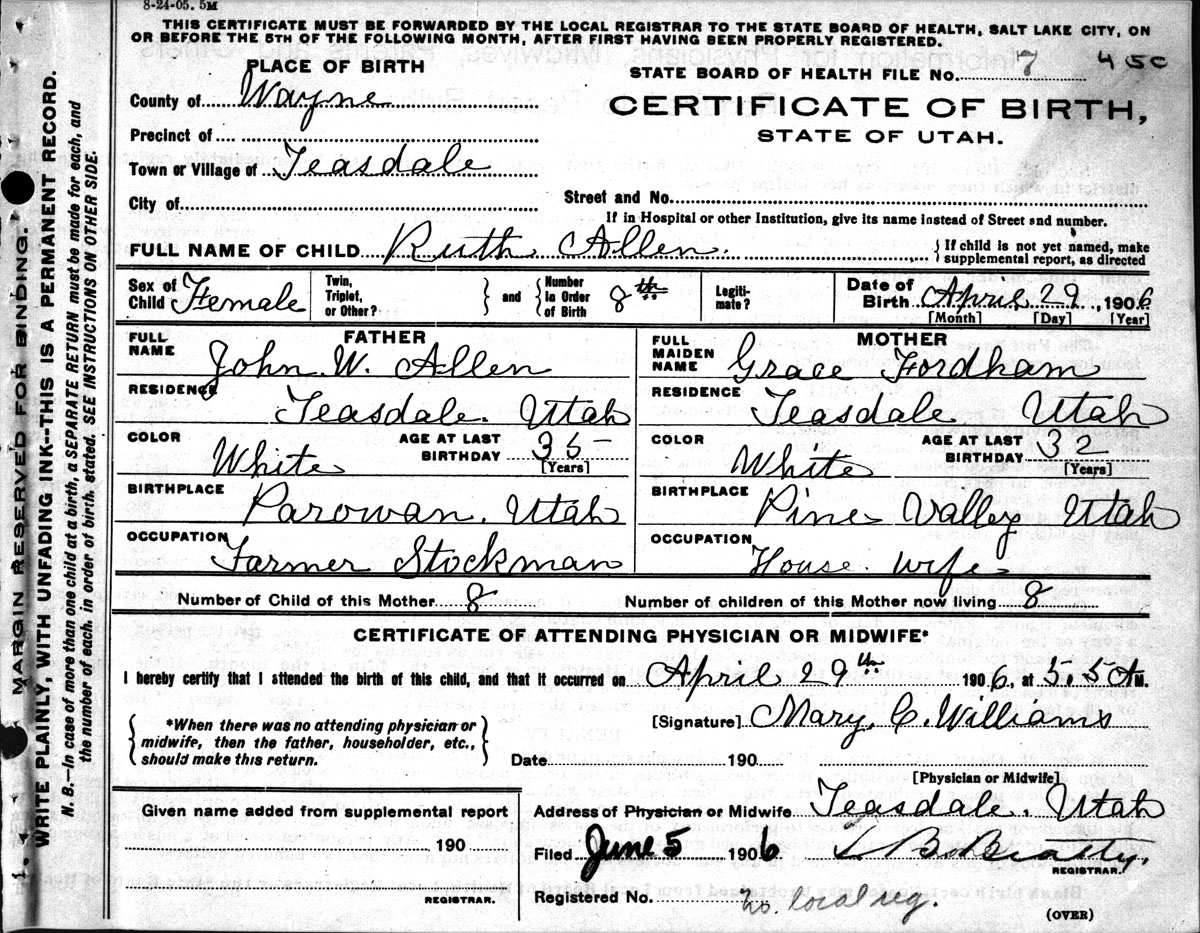 8-24-05. 5M
THIS CERTIFICATE MUST BE FORWARDED BY THE LOCAL REGISTRAR TO THE STATE BOARD OF HEALTH, SALT LAKE CITY, ON
OR BEFORE THE 5TH OF THE FOLLOWING MONTH, AFTER FIRST HAVING BEEN PROPERLY REGISTERED.
PLACE OF BIRTH
STATE BOARD OF HEALTH FILE No. 7 450
County of Wayne
CERTIFICATE OF BIRTH,
STATE OF UTAH.
Precinct of
Town or Village of Teasdale
City of
Street and No.
If in Hospital or other Institution, give its name instead of Street and number.
FULL NAME OF CHILD Ruth Allen.
If child is not yet named, make
supplemental report, as directed
Sex of Child Female
Twin, Triplet, or Other?
and
Number in Order of Birth 8th
Legitimate?
Date of Birth April 29, 1906
[Month] [Day] [Year]
FATHER
FULL NAME John W. Allen
MOTHER
FULL MAIDEN NAME Grace Fordham
RESIDENCE Teasdale. Utah
RESIDENCE Teasdale Utah
COLOR White
AGE AT LAST BIRTHDAY 35
[Years]
COLOR White
AGE AT LAST BIRTHDAY 32
[Years]
BIRTHPLACE Parowan. Utah
BIRTHPLACE Pine Valley Utah
OCCUPATION Farmer Stockman
OCCUPATION House wife
Number of Child of this Mother 8
Number of children of this Mother now living 8
CERTIFICATE OF ATTENDING PHYSICIAN OR MIDWIFE*
I hereby certify that I attended the birth of this child, and that it occurred on April 29th 1906, at 5.5 A M.
*When there was no attending physician or
midwife, then the father, householder, etc.,
should make this return.
[Signature] Mary C. Williams
Date 190
[Physician or Midwife]
Given name added from supplemental report
190
REGISTRAR.
Address of Physician or Midwife Teasdale, Utah
Filed June 5 1906 T. B. Beatty.
REGISTRAR.
Registered No. no. local reg.
(OVER)
1. MARGIN RESERVED FOR BINDING.
WRITE PLAINLY, WITH UNFADING INK--THIS IS A PERMANENT RECORD.
N. B.--In case of more than one child at a birth, a SEPARATE RETURN must be made for each, and
the number of each. in order of birth. stated. SEE INSTRUCTIONS ON OTHER SIDE.